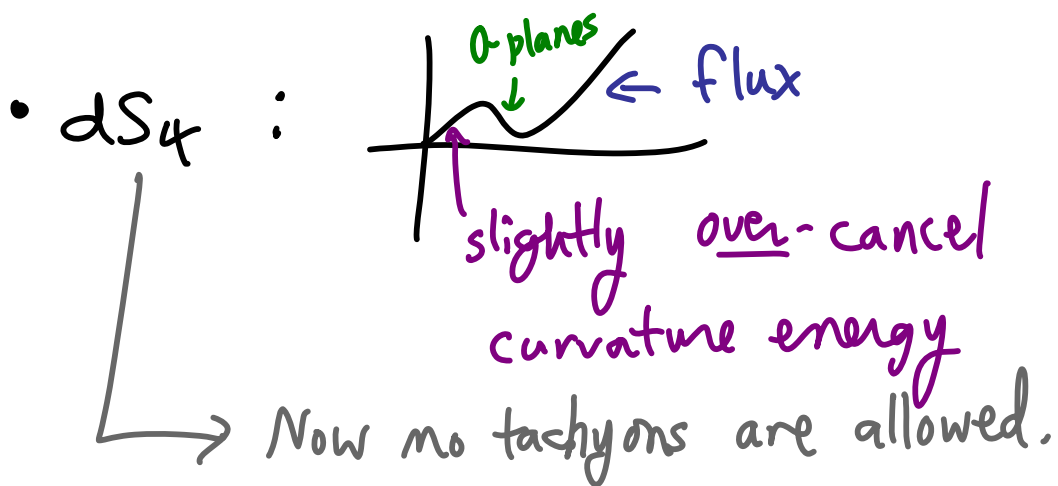 O-planes
• dS₄ : ← flux
slightly over-cancel
curvature energy
Now no tachyons are allowed.